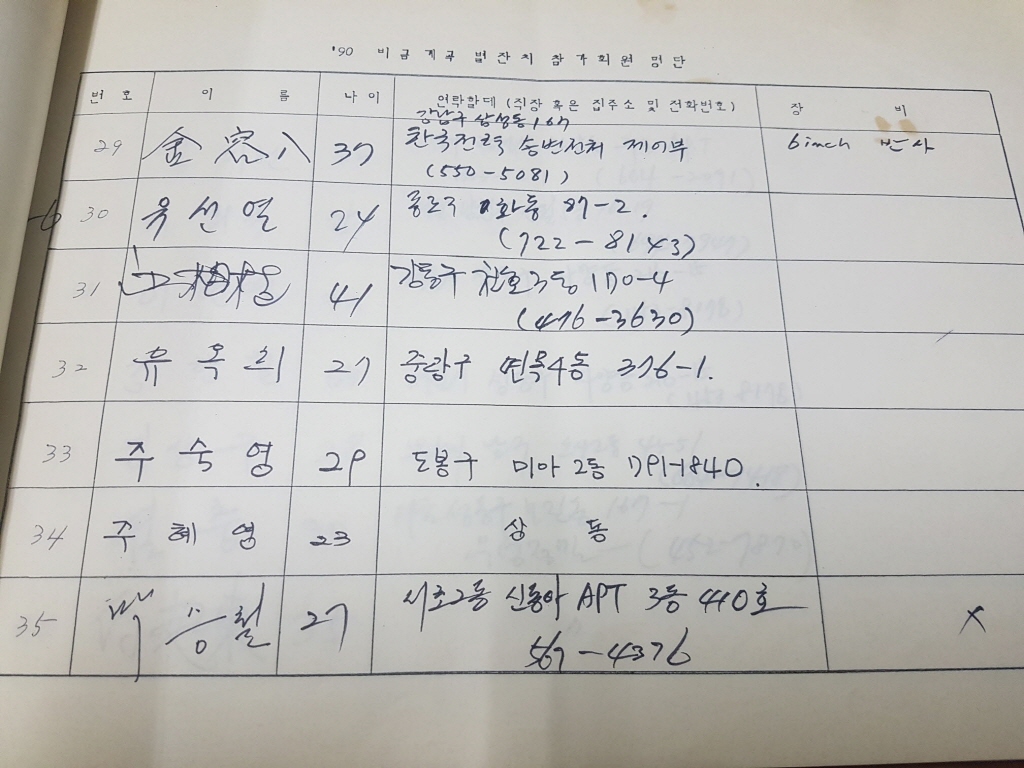 '90 비금계곡 별잔치 참가회원 명단
번호 이름 나이 연락할데 (직장 혹은 집주소 및 전화번호) 장비
강남구 삼성동 167
29 金容八 37 한국전력 송변전처 제어부 6 inch 반사
(550-5081)
30 옥선열 24 종로구 화동 87-2.
(722-8143)
31 41 강동구 천호3동 170-4
(476-3630)
32 유옥희 27 중랑구 면목4동 376-1.
33 주숙영 29 도봉구 미아2동 791-1840.
34 주혜영 23 상동
35 박승철 27 서초2동 신동아 APT 3동 440호 X
567-4376